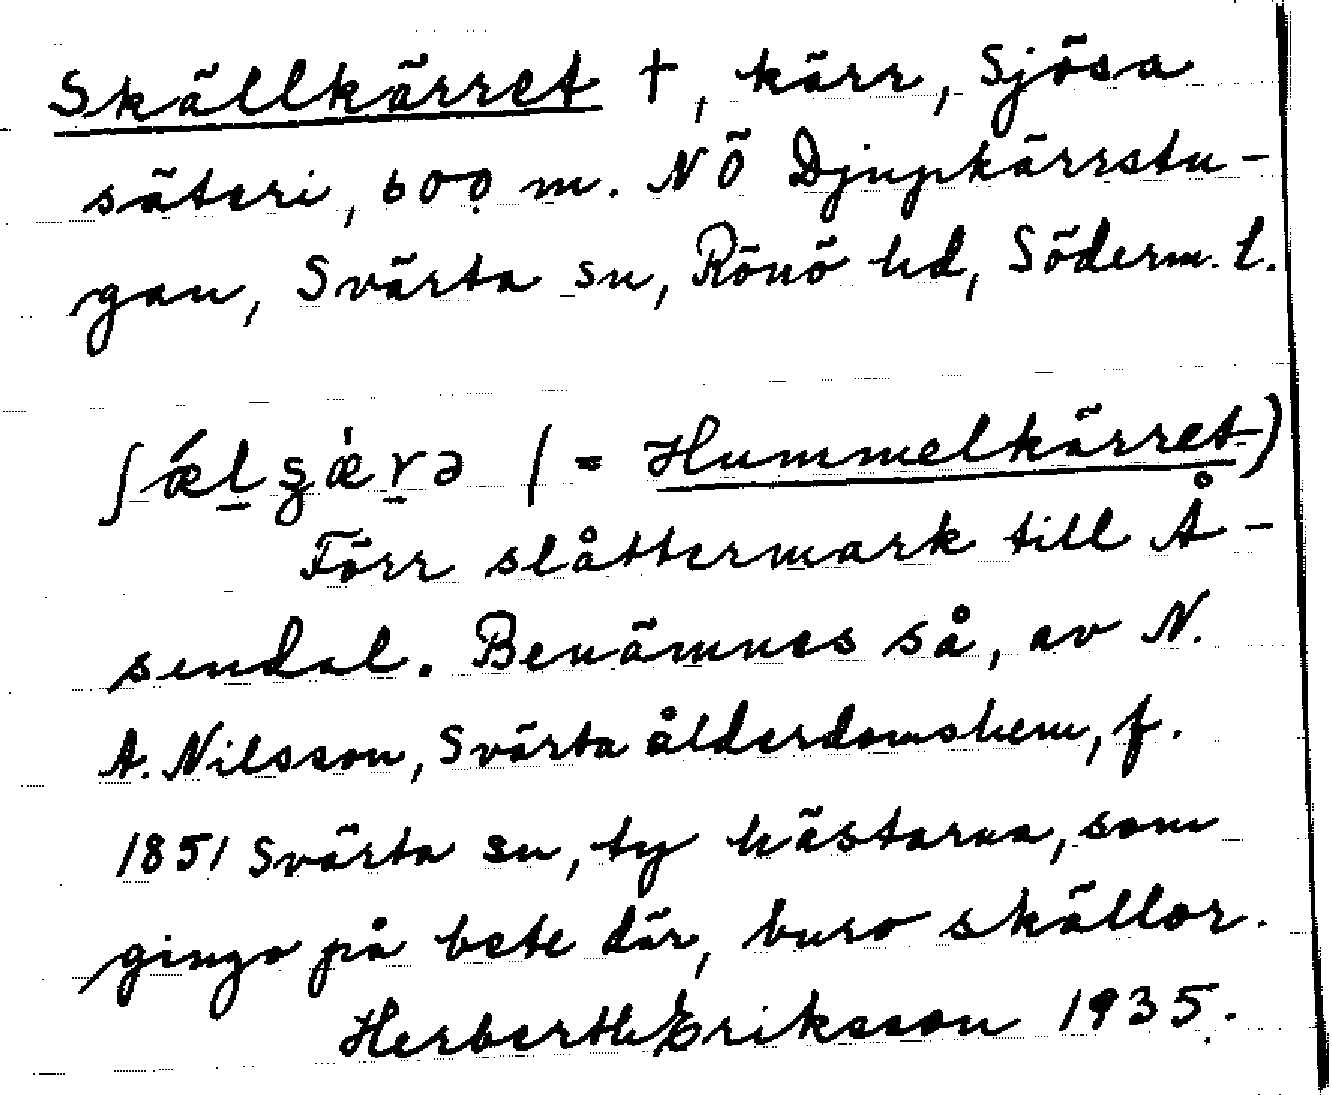 Skällkärret †, kärr, Sjösa
säteri, 600 m. NÖ Djupkärrstu-
gan, Svärta sn, Rönö hd, Söderm. l.
(= Hummelkärret)
Förr slåttermark till Å-
sendal. Benämnes så, av N.
A. Nilsson, Svärta ålderdomshem, f.
1851 Svärta sn, ty hästarna, som
gingo på bete där, buro skällor.
Herberth Eriksson 1935.